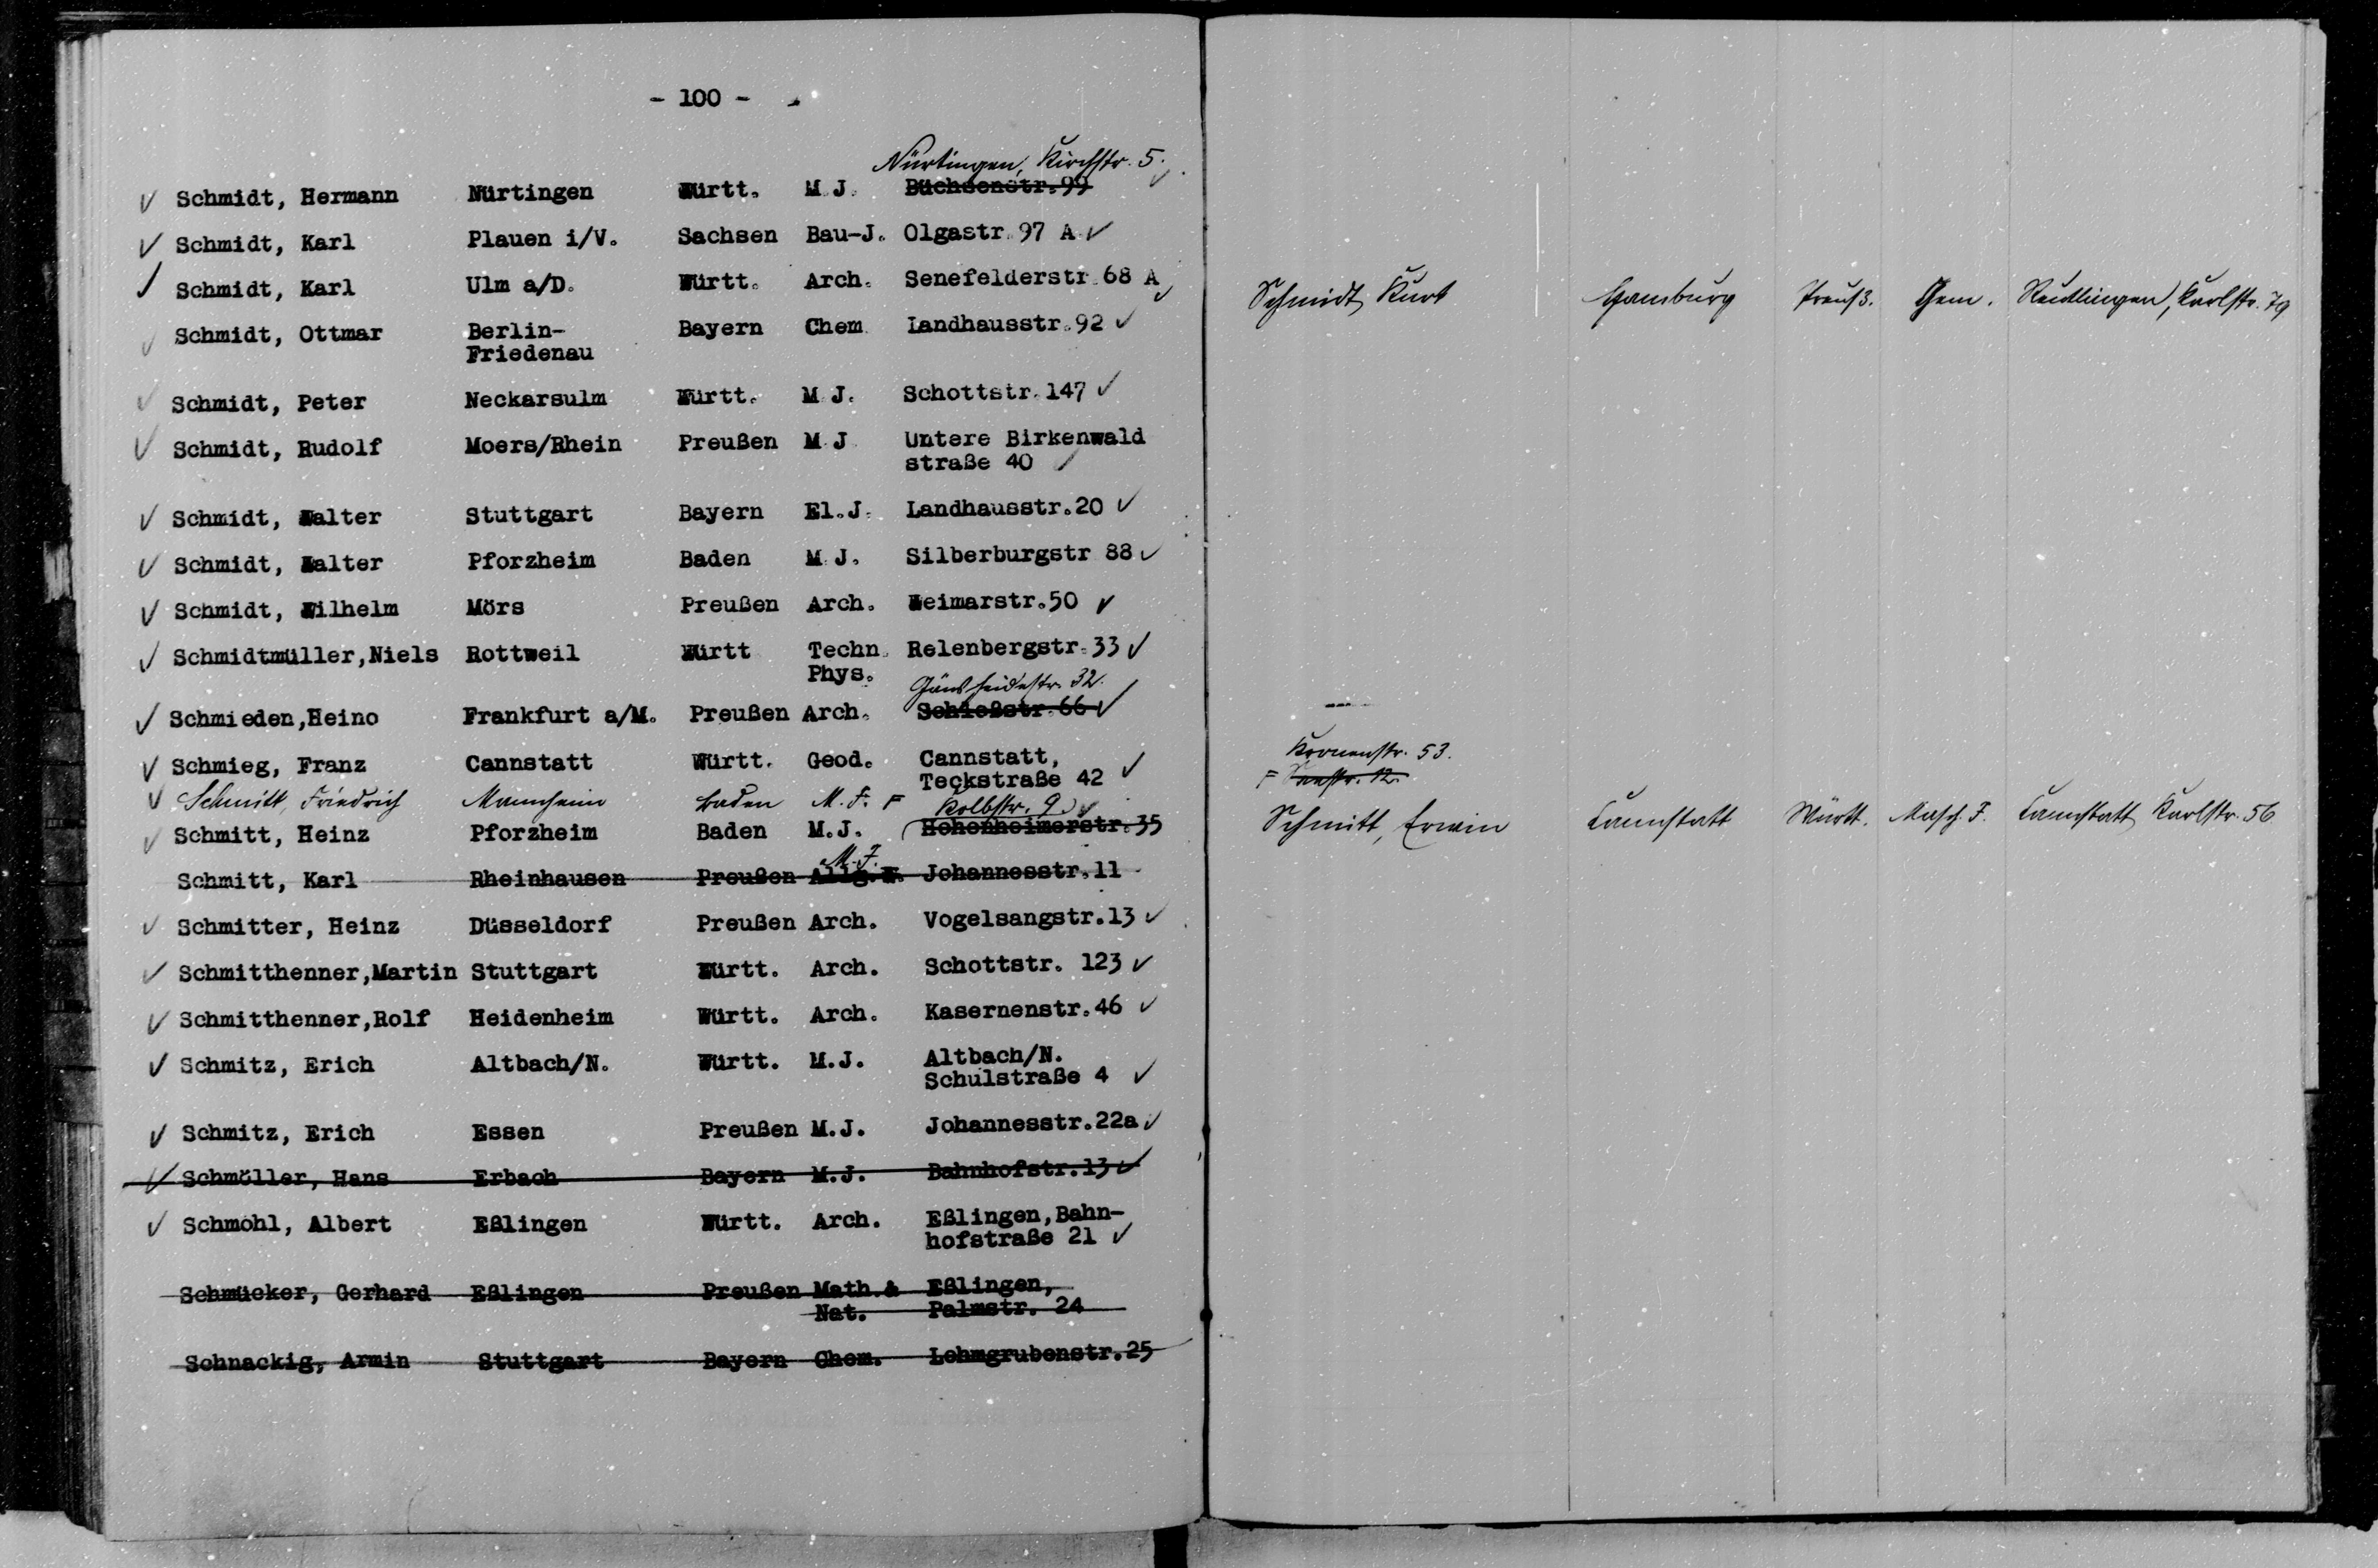 - 100 -
Nürtingen, Kirchstr. 5.
Schmidt, Hermann Nürtingen Württ. M.J. Büchsenstr.99
Schmidt, Karl Plauen i/V. Sachsen Bau-J. Olgastr.97 A
Schmidt, Karl Ulm a/D. Württ. Arch. Senefelderstr.68 A
Schmidt, Ottmar Berlin- Bayern Chem. Landhausstr.92
Friedenau
Schmidt, Peter Neckarsulm Württ. M.J. Schottstr.147
Schmidt, Rudolf Moers/Rhein Preußen M.J. Untere Birkenwald
straße 40
Schmidt, Walter Stuttgart Bayern El.J. Landhausstr.20
Schmidt, Walter Pforzheim Baden M.J. Silberburgstr.88
Schmidt, Wilhelm Mörs Preußen Arch. Weimarstr.50
Schmidtmüller,Niels Rottweil Württ Techn. Relenbergstr.33
Phys.
Gänsheidestr. 32.
Schmieden,Heino Frankfurt a/M. Preußen Arch. Schloßstr.66
Schmieg, Franz Cannstatt Württ. Geod. Cannstatt,
Teckstraße 42
Schmitt, Friedrich Mannheim Baden M.J. F Kolbstr. 9.
Schmitt, Heinz Pforzheim Baden M.J. Hohenheimerstr.35
M.J.
Schmitt, Karl Rheinhausen Preußen Allg. Johannesstr.11
Schmitter, Heinz Düsseldorf Preußen Arch. Vogelsangstr.13
Schmitthenner,Martin Stuttgart Württ. Arch. Schottstr. 123
Schmitthenner,Rolf Heidenheim Württ. Arch. Kasernenstr.46
Schmitz, Erich Altbach/N. Württ. M.J. Altbach/N.
Schulstraße 4
Schmitz, Erich Essen Preußen M.J. Johannesstr.22a
Schmöller, Hans Erbach Bayern M.J. Bahnhofstr.13
Schmohl, Albert Eßlingen Württ. Arch. Eßlingen,Bahn-
hofstraße 21
Schmücker, Gerhard Eßlingen Preußen Math.& Eßlingen,
Nat. Palmstr. 24
Schnackig, Armin Stuttgart Bayern Chem. Lehmgrubenstr.25
Schmidt, Kurt Hamburg Preuß. Reutlingen, Karlstr. 79
Kronenstr. 53.
F
Schmitt, Erwin Cannstatt Württ. Masch. J. Cannstatt Karlstr. 56